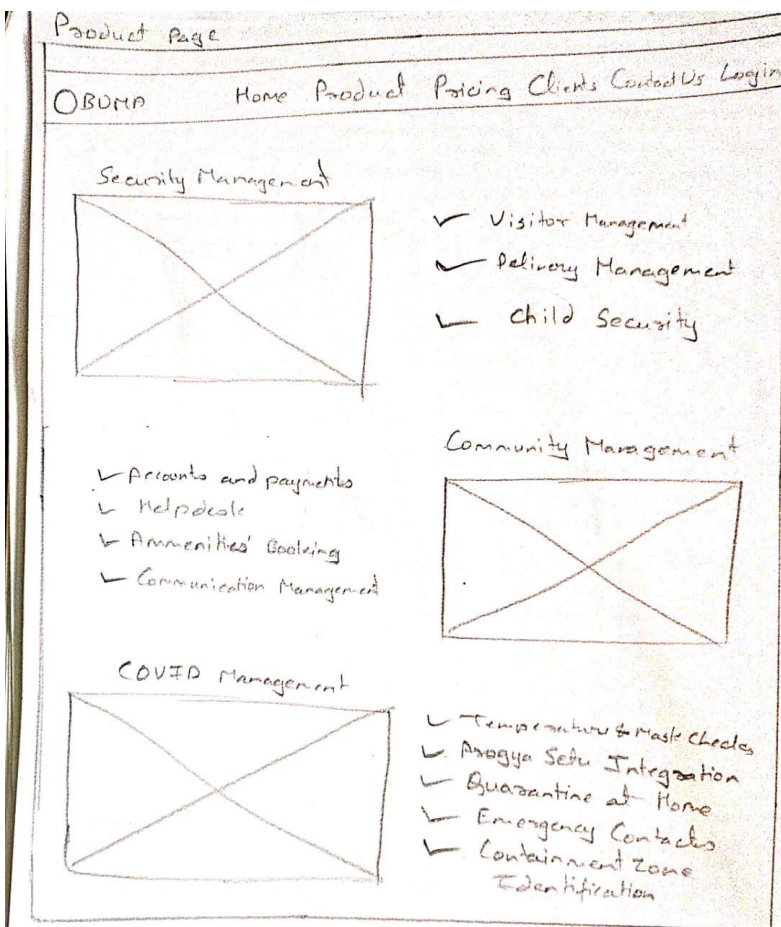 Product Page
OBUMA Home Product Pricing Clients Contact Us Login
Security Management
✓ Visitor Management
✓ Delivery Management
✓ Child Security
Community Management
✓ Accounts and payments
✓ Helpdesk
✓ Ammenities' Booking
✓ Communication Management
COVID Management
✓ Temperature & Mask Checks
✓ Arogya Setu Integration
✓ Quarantine at Home
✓ Emergency Contacts
✓ Containment Zone
Identification